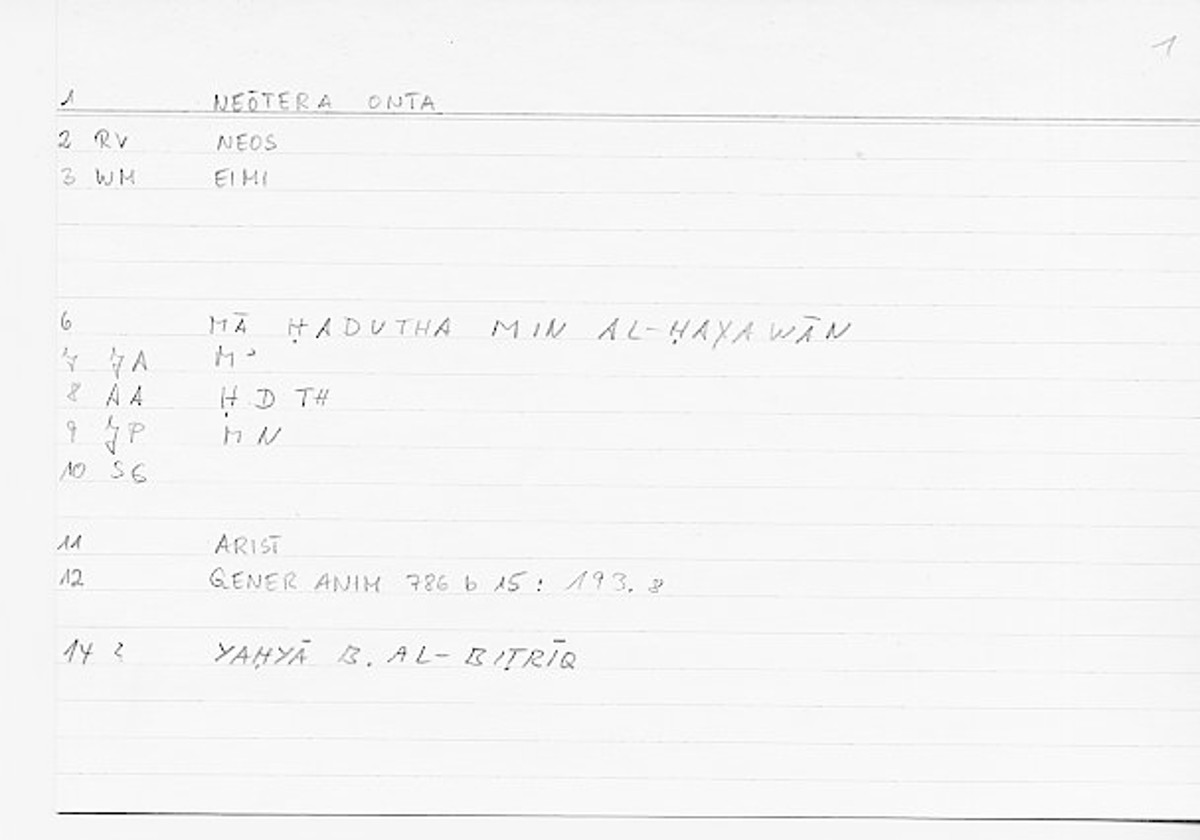 1
1 NEŌTERA ONTA
2 RV NEOS
3 WM EIMI
6 MĀ ḤADUTHA MIN AL-ḤAYAWĀN
7 JA Mʾ
8 AA Ḥ D TH
9 JP M N
10 SG
11 ARIST
12 GENER ANIM 786 b 15 : 193. 8
14 YAḤYĀ B. AL-BIṬRĪQ